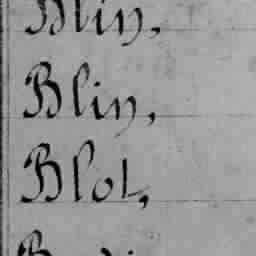 Blin,
Blin,
Blot,